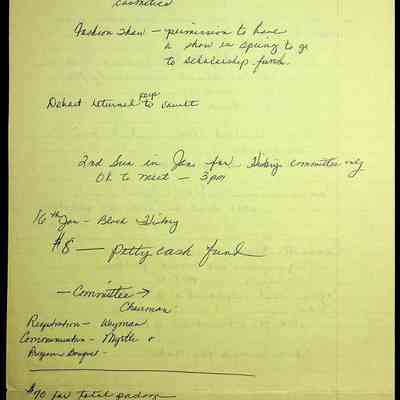 cosmetics
Fashion Show - permission to have
a show in spring to go
to scholarship fund.
Dehart returned to vault
2nd Sun in Jan for History committee only
OK to meet - 3pm
16th Jan - Black History
$8 - petty cash fund
- Committee →
Chairman
Registration - Wayman
Communication - Myrtle
Program Banquet -
$70 for total